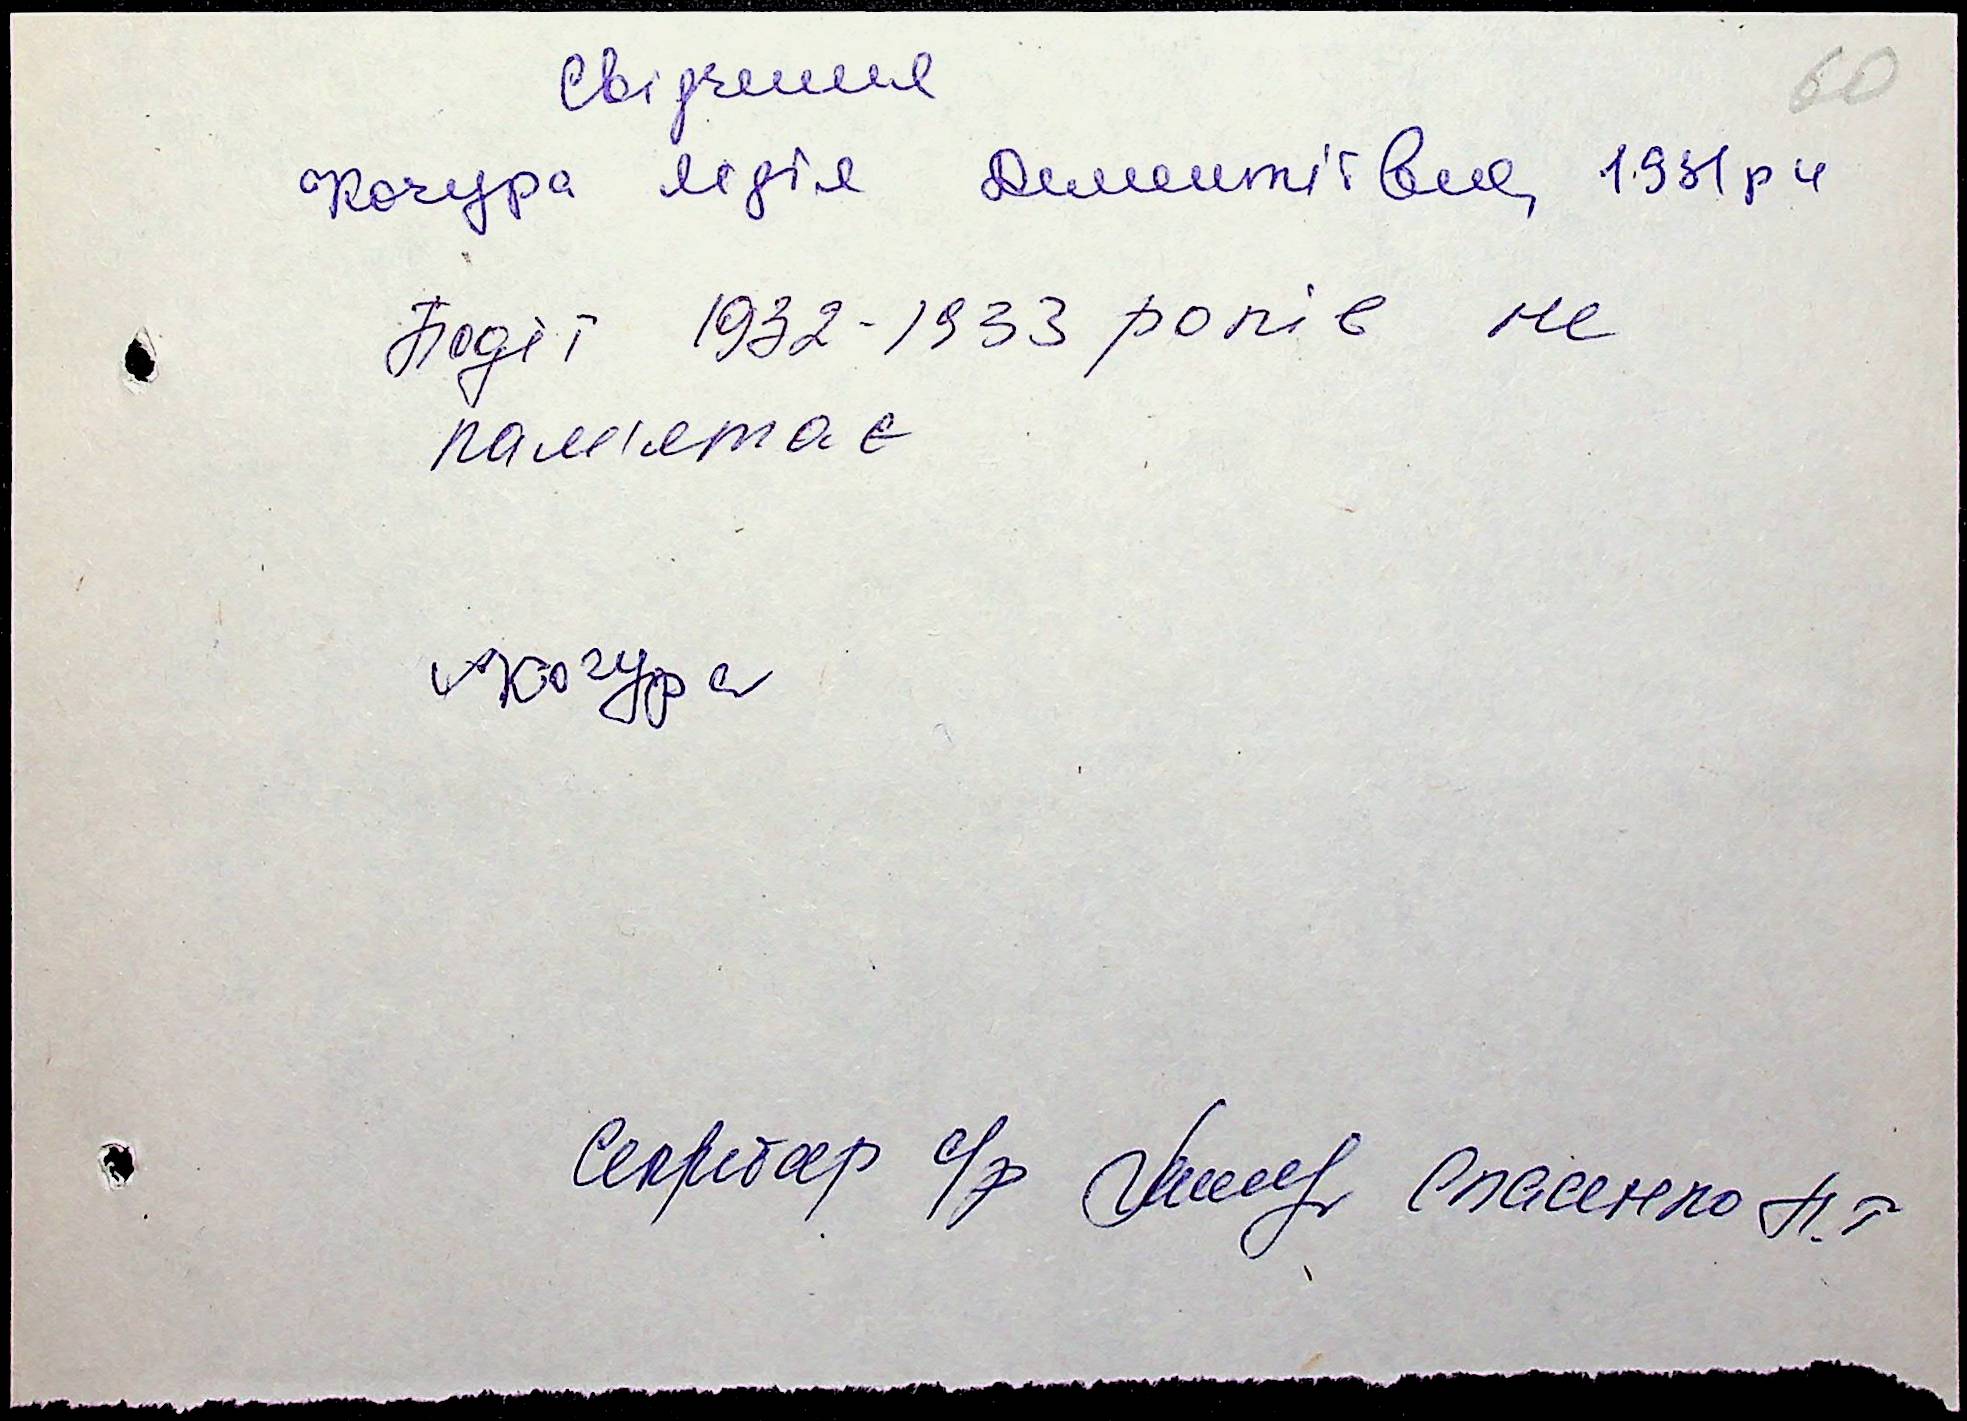 60
Свідчення
Кочура Лідія Дементіївна, 1931 р н
Події 1932-1933 років не
пам'ятає
Кочура
Секретар с/р Спасенко Н. Г